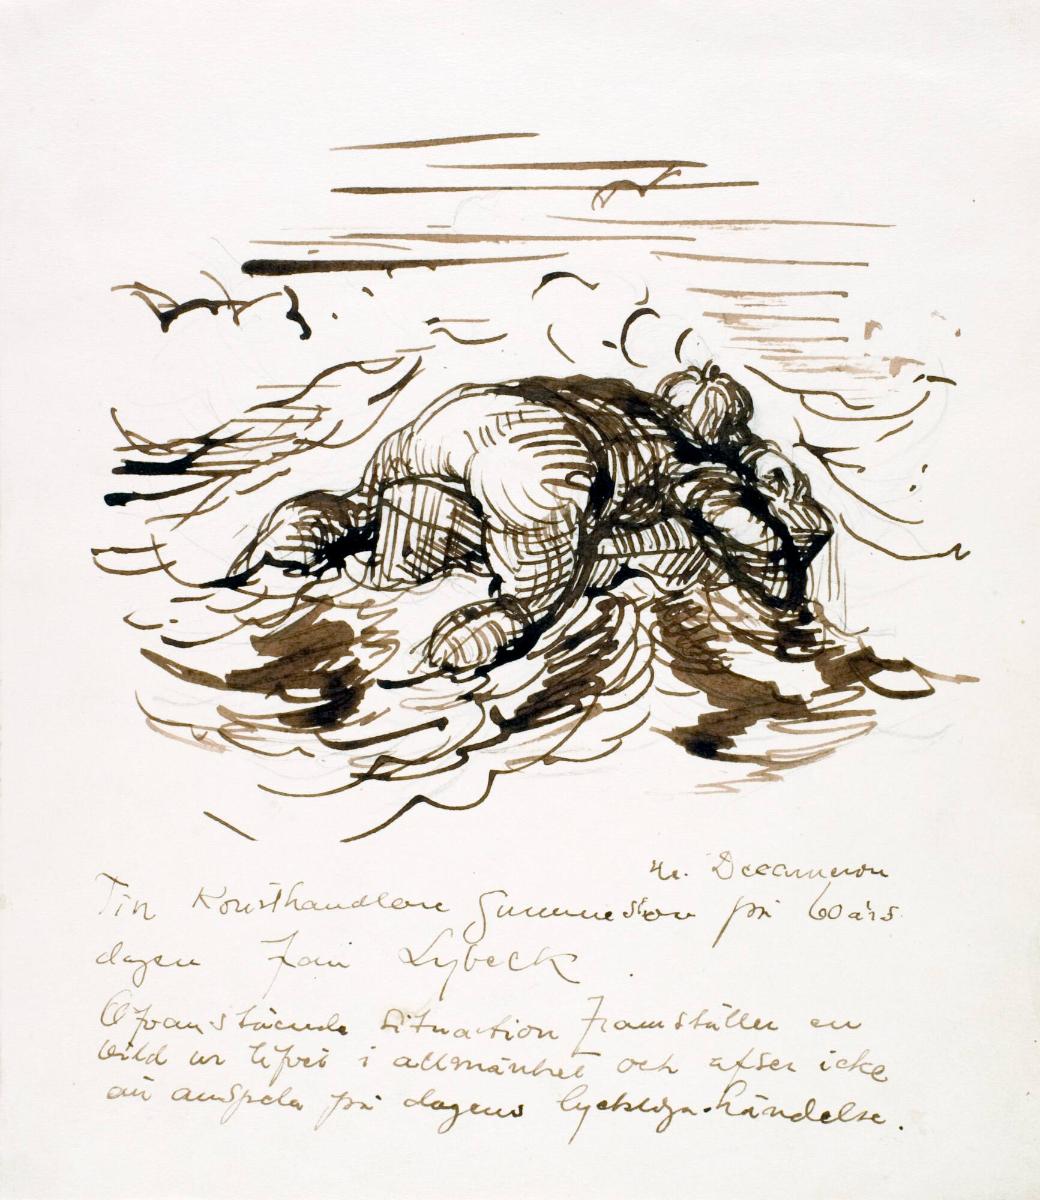 ur. Decameron
Till Konsthandlare Gummeson på 60 års
dagen från Lybeck
Ofvanstående situation framställer en
bild ur lifvet i allmänhet och afser icke
att anspela på dagens lyckliga händelse.